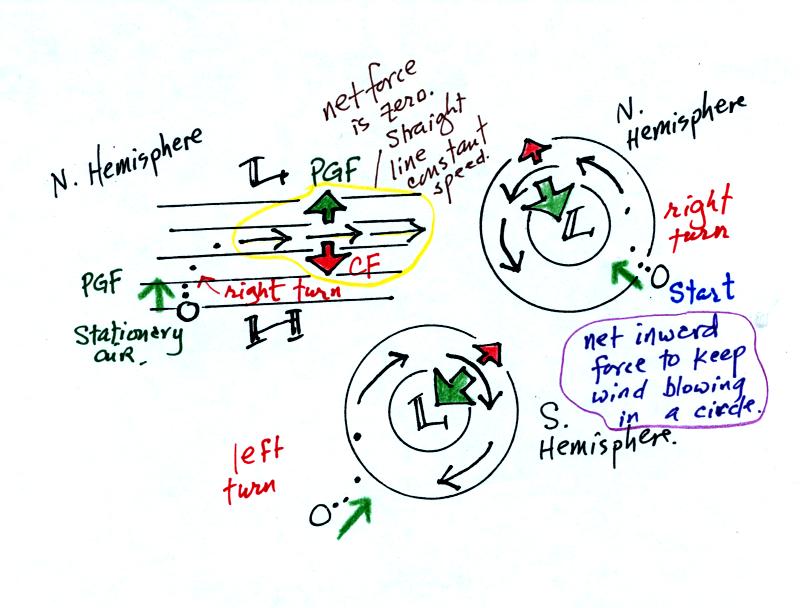 N. Hemisphere
net force
is zero.
straight
line
constant
speed.
L
PGF
CF
PGF
right turn
Stationery
air.
H
N.
Hemisphere
L
right
turn
Start
net inward
force to keep
wind blowing
in a circle.
L
S.
Hemisphere.
left
turn